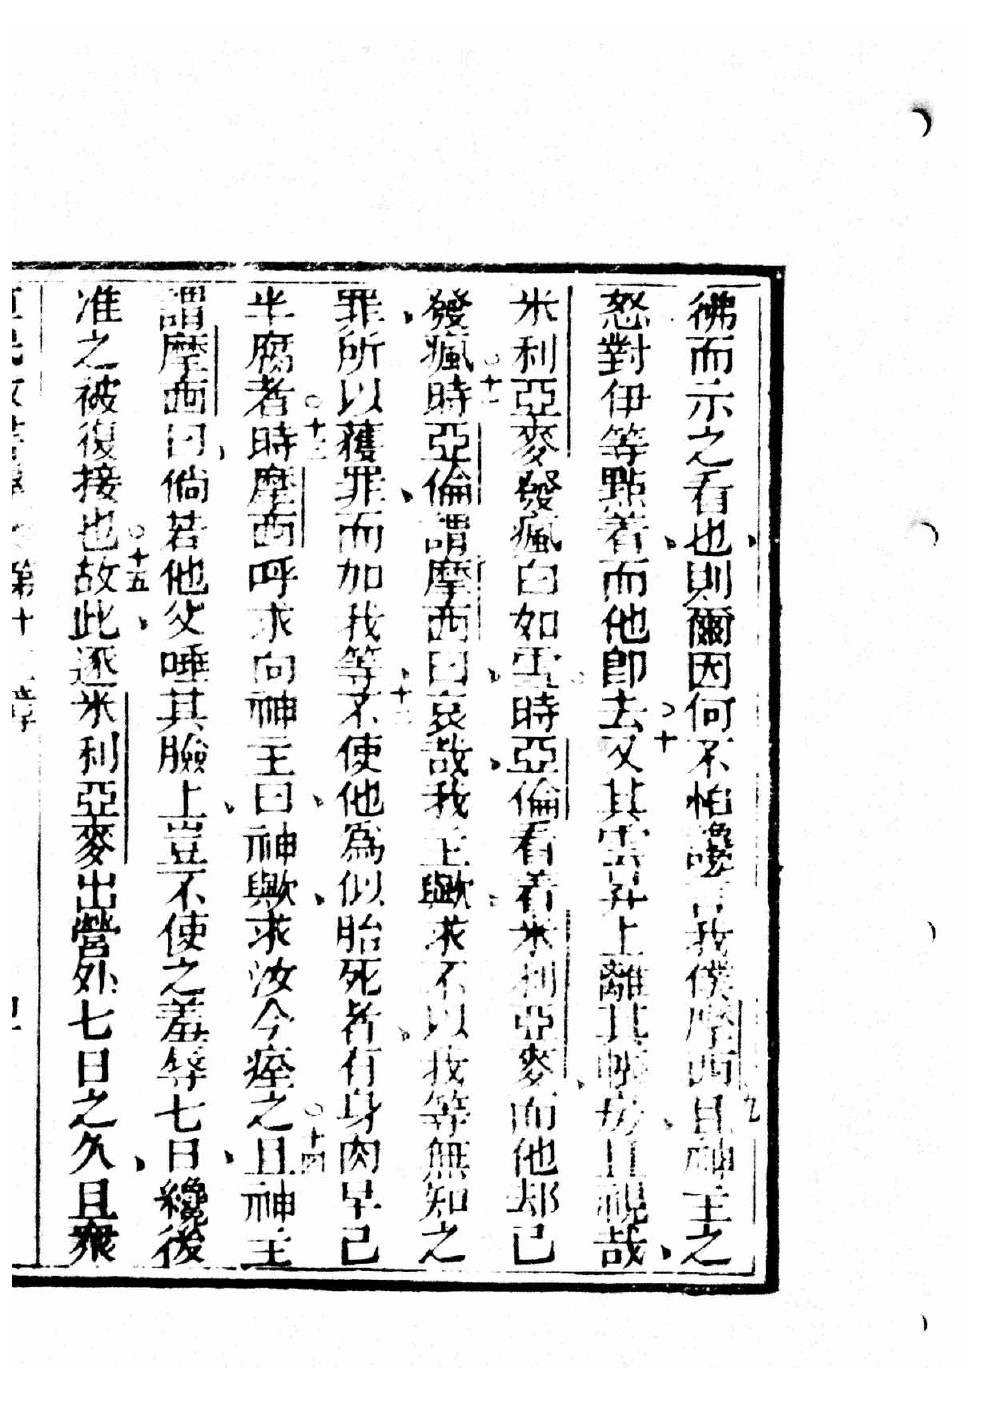 彿而示之看也則爾因何不怕讒言我僕摩西且神主之
怒對伊等點着而他卽去又其雲昇上離其帳房且視哉
米利亞麥發瘋白如雪時亞倫看着米利亞麥而他却已
發瘋時亞倫謂摩西曰哀哉我主歟求不以我等無知之
罪所以獲罪而加我等不使他爲似胎死者有身肉早已
半腐者時摩西呼求向神主曰神歟求汝今痊之且神主
謂摩西曰倘若他父唾其臉上豈不使之羞辱七日纔後
准之被復接也故此逐米利亞麥出營外七日之久且衆